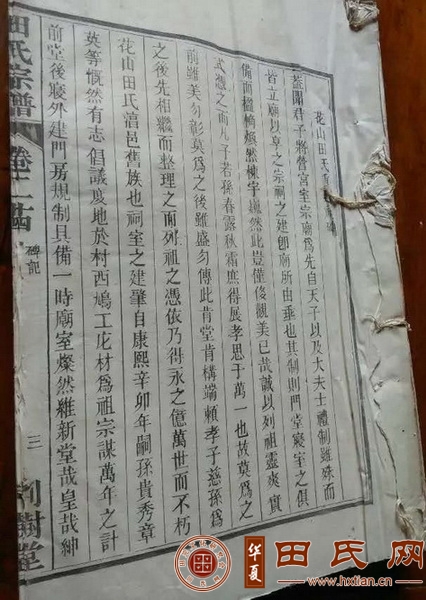 花山田氏重
蓋聞君子將營宮室宗廟為先自天子以及大夫士禮制雖殊而
皆立廟以享之宗祠之建卽廟所由垂也其制則門堂寢室之俱
備而楹桷煥然棟宇巍然此豈僅俊觀美已哉誠以列祖靈爽實
式憑之而凡子若孫春露秋霜庶得展孝思于萬一也故莫為之
前雖美勿彰莫為之後雖盛勿傳此肯堂肯構端賴孝子慈孫為
之後先相繼而整理之而列祖之憑依乃得永之億萬世而不朽
花山田氏淯邑舊族也祠室之建肇自康熙辛卯年嗣孫貴秀章
英等慨然有志倡議度地於村西鳩工庀材為祖宗謀萬年之計
前堂後寢外建門房規制具備一時廟室燦然維新堂哉皇哉紳
田氏宗譜
卷二十四
碑記
三
荆樹堂
華夏
田氏网
www.hxtian.cn